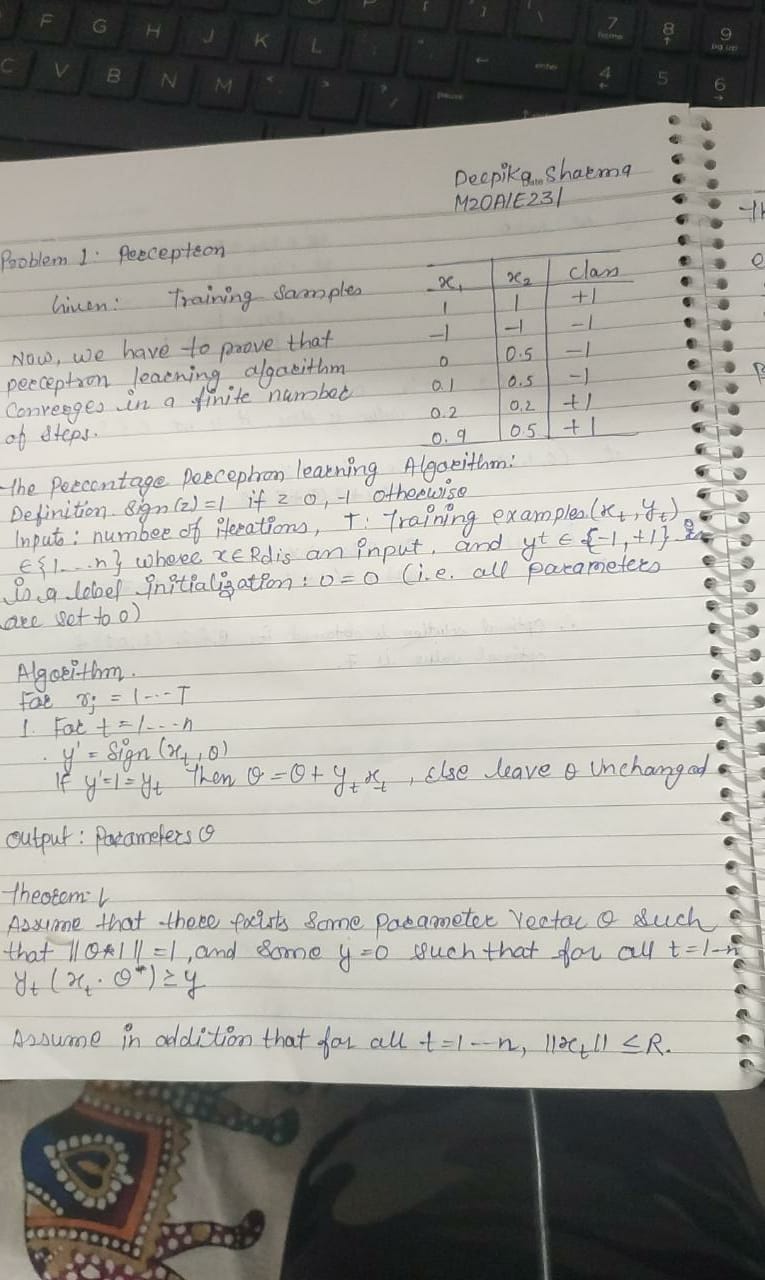 F G H J K L
7
home
8
9
pg up
C V B N M
pause
enter
4
5
6
Deepika Sharma
M20AIE231
Problem 1: Perceptron
Given: Training Samples
x₁ x₂ class
1 1 +1
-1 -1 -1
0 0.5 -1
0.1 0.5 -1
0.2 0.2 +1
0.9 0.5 +1
Now, we have to prove that
perceptron learning algorithm
Converges in a finite number
of steps.
The Percentage Perceptron learning Algorithm:
Definition. Sign(z)=1 if z 0, -1 otherwise
Inputs: number of iterations, T: Training examples (xₜ, yₜ)
∈{1...n} where x∈Rdis an input, and yt ∈ {-1, +1}
is a label initialization: 0=0 (i.e. all parameters
are set to 0)
Algorithm.
For rj = 1...T
1. For t=1...n
. y' = Sign (xₜ, θ)
If y'=1=yₜ Then θ=θ+yₜxₜ, else leave θ unchanged
Output: Parameters θ
Theorem: 1
Assume that there exists some parameter vector θ such
that ||θ*1||=1, and some y=0 such that for all t=1-n
yₜ(xₜ. θ*)≥y
Assume in addition that for all t=1--n, ||xₜ|| ≤R.